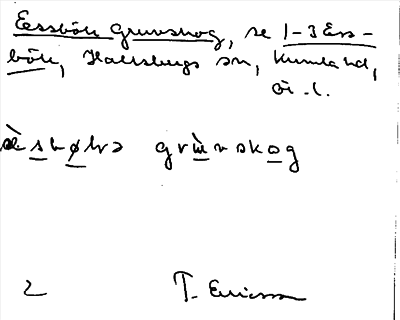 Essböle Grunskog, se 1-3 Ess-
böle, Hallsbergs sn, Kumla hd,
ör. l.
grùnskog
2 T. Ericsson